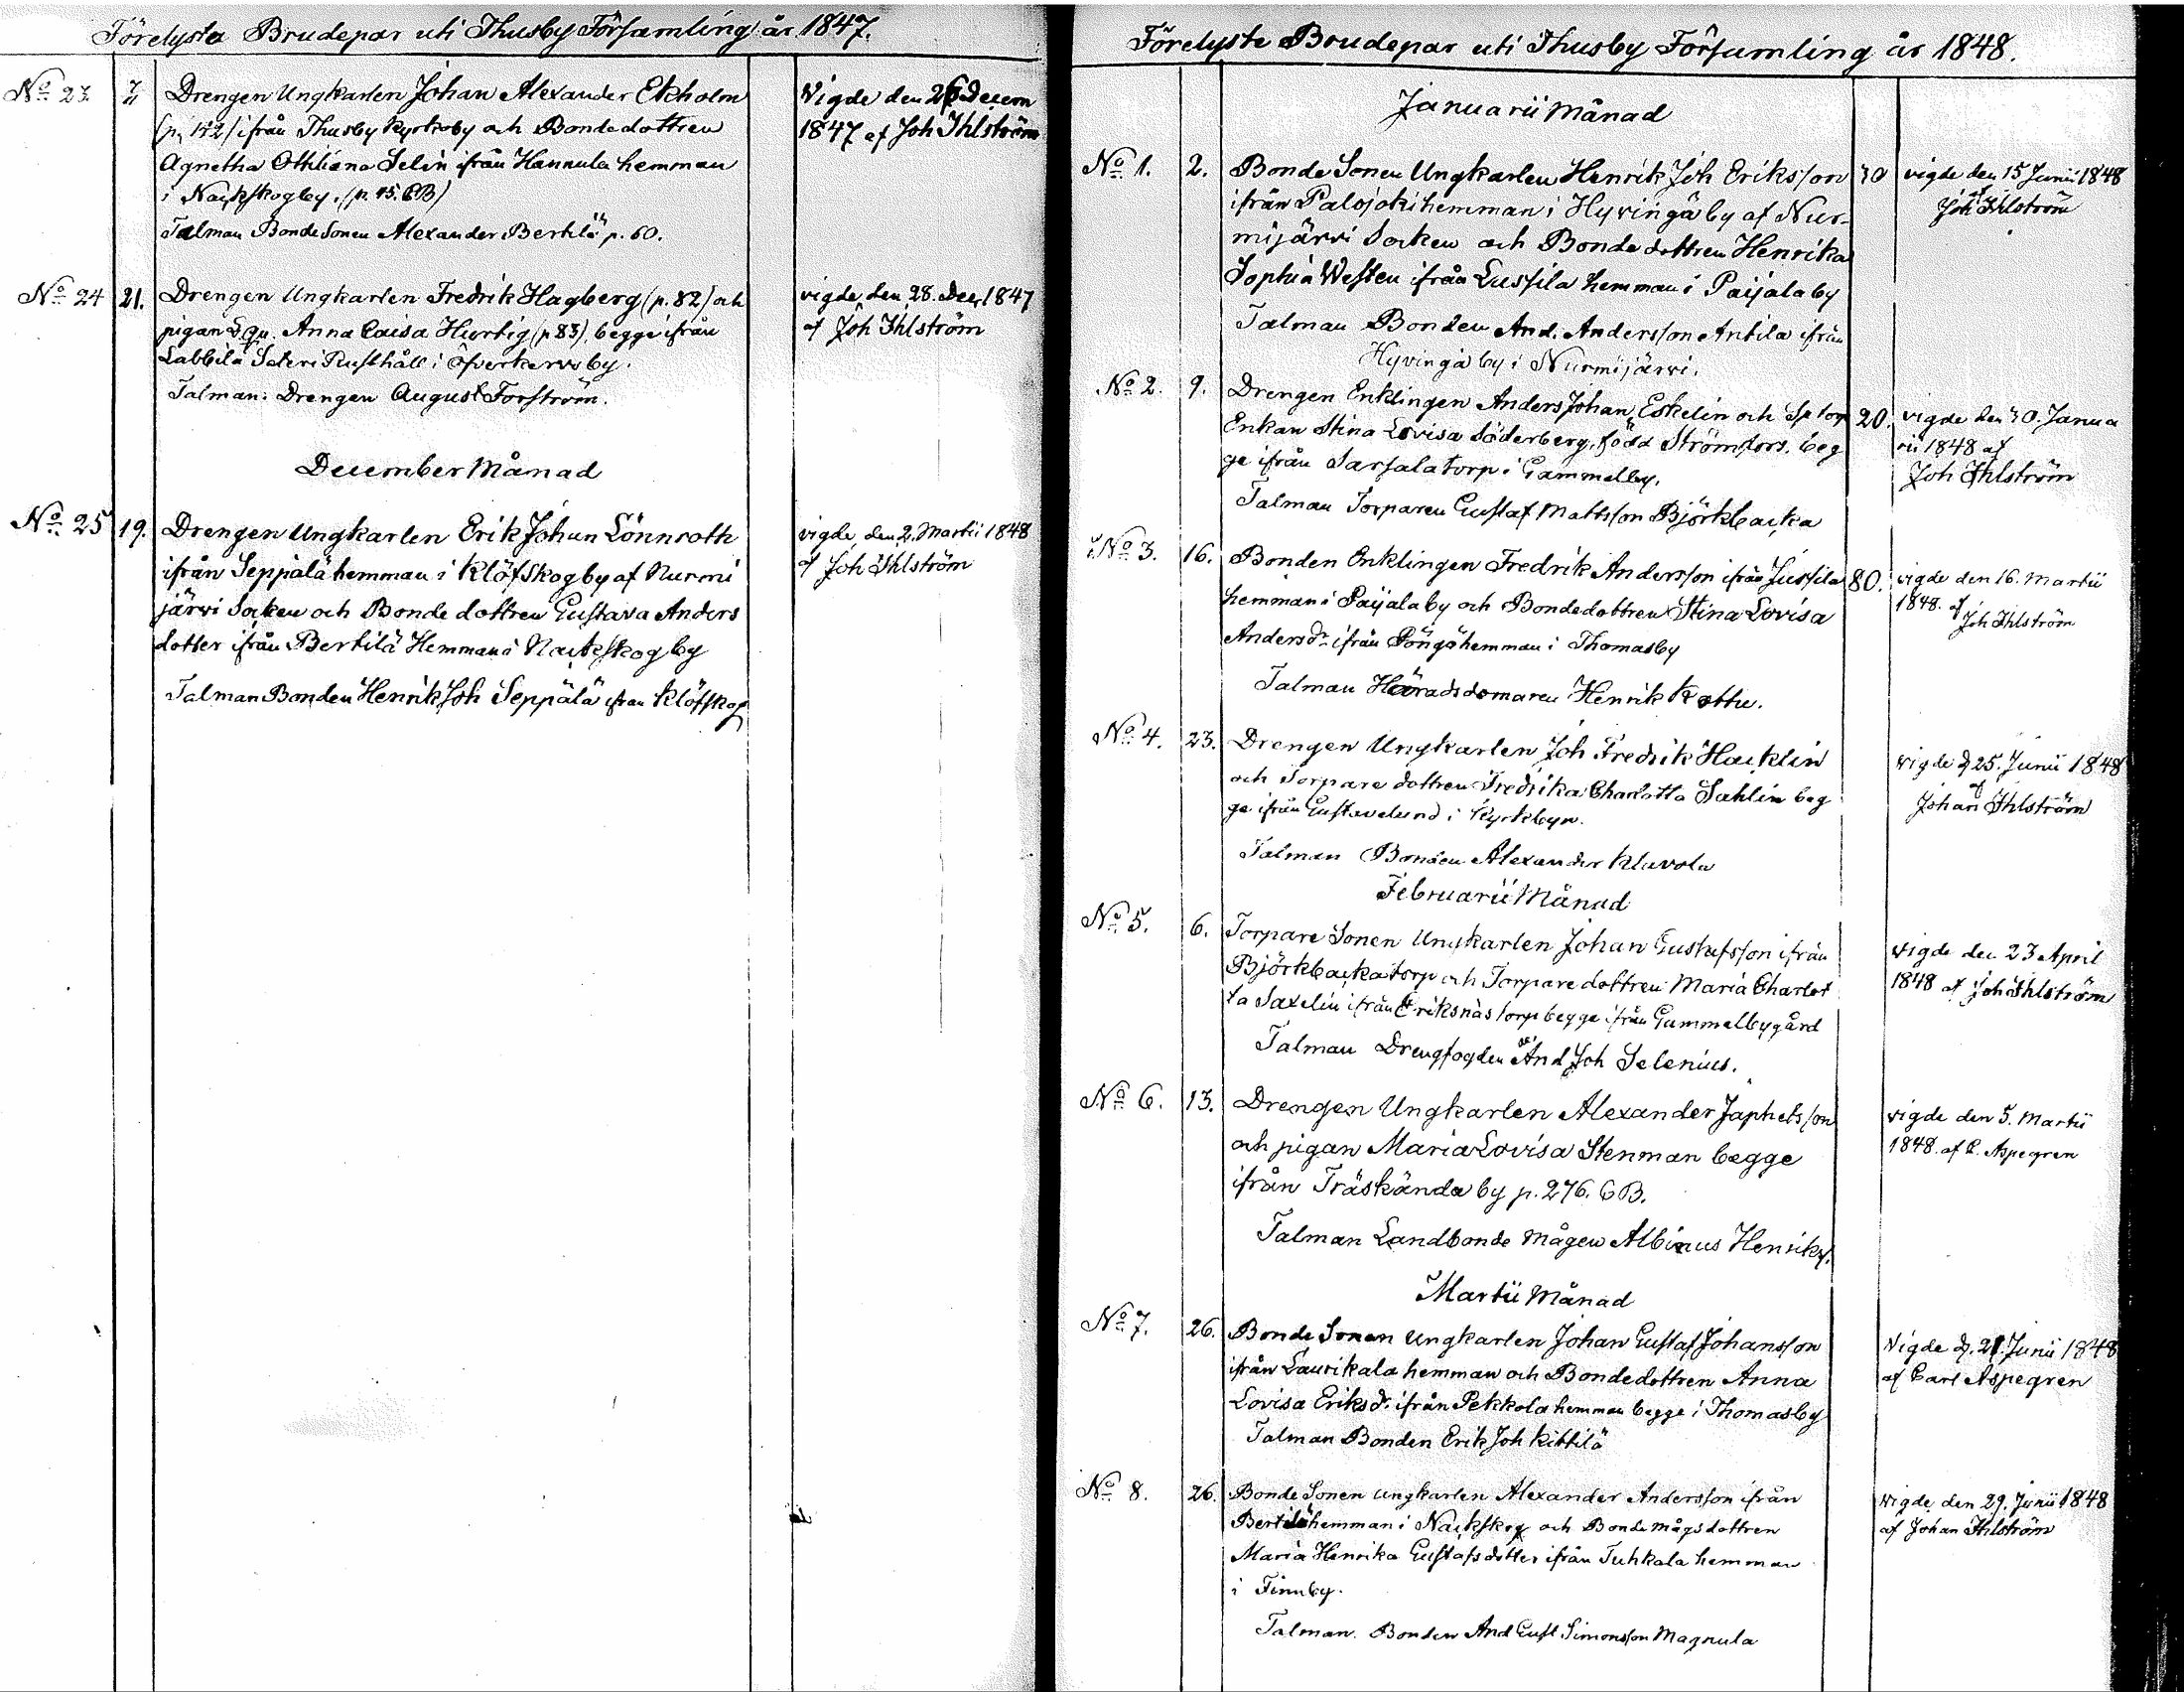 Förelysta Brudepar uti Thusby Församling år 1847.
No 23. 7. Drengen Ungkarlen Johan Alexander Ekholm
(p. 142) ifrån Thusby Kyrkoby och Bondedottren
Agnetha Othiliana Selin ifrån Hannula hemman
i Nackskogby. (p. 45. CB)
Talman Bonde Sonen Alexander Bertilä p. 60.
Vigde den 26 Decem
1847 af Joh Ihlström
No 24 21. Drengen Ungkarlen Fredrik Hagberg (p. 82) och
pigan Anna Caisa Hurtig (p 83), begge ifrån
Labbila Säteri Rusthåll i Öfverkervo by.
Talman: Drengen August Forsström.
vigde den 28. Dec, 1847
af Joh Ihlström
December Månad
No 25 19. Drengen Ungkarlen Erik Johan Lönnroth
ifrån Seppälä hemman i Klöfskogby af Nurmi
järvi Socken och Bonde dottren Gustava Anders
dotter ifrån Bertilä Hemman i Nackskogby
Talman Bonden Henrik Joh Seppälä ifran Klöfskog
vigde den 2. Martii 1848
af Joh Ihlström
Förelyste Brudepar uti Thusby Församling år 1848.
Januarii Månad
No 1. 2. Bonde Sonen Ungkarlen Henrik Joh Eriksson 30
ifrån Palojoki hemman i Hyvingä by af Nur-
mijärvi Socken och Bonde dottren Henrika
Sophia Westen ifrån Lussila hemman i Paijala by
Talman Bonden And. Andersson Antila ifrån
Hyvingä by i Nurmijärvi.
vigde den 15 Junii 1848
af
Joh Ihlström
No 2. 9. Drengen Enklingen Anders Johan Eskelin och Sptorp 20.
Enkan Stina Lovisa Söderberg, född Strömfors, beg
ge ifrån Sarsala torp i Gammelby.
Talman Torparen Gustaf Mattsson Björkbacka
vigde den 30. Janua
rii 1848 af
Joh Ihlström
No 3. 16. Bonden Enklingen Fredrik Andersson ifrån Jussila 80.
hemman i Paijala by och Bondedottren Stina Lovisa
Andersdr. ifrån Pöngö hemman i Thomasby
Talman Häradsdomaren Henrik Kottu.
vigde den 16. Martii
1848. af
Joh Ihlström
No 4. 23. Drengen Ungkarlen Joh Fredrik Hacklin
och Torpare dottren Fredrika Charlotta Sahlin beg
ge ifrån Gustavelund i Kyrkbyn.
Talman Bonden Alexander Klavola
vigde d. 25. Junii 1848
af
Johan Ihlström
Februarii Månad
No 5. 6. Torpare Sonen Ungkarlen Johan Gustafsson ifrån
Björkbacka torp och Torpare dottren Maria Charlot
ta Saxelin ifrån Eriksnäs torp begge ifrån Gammelbygård
Talman Drengfogden And Joh Selenius.
vigde den 23 April
1848 af Joh Ihlström
No 6. 13. Drengen Ungkarlen Alexander Japhetsson
och pigan Maria Lovisa Stenman begge
ifrån Träskända by p. 276. CB.
Talman Landbonde Mågen Albinus Henriks.
vigde den 5. Martii
1848. af C. Aspegren
Martii Månad
No 7. 26. Bonde Sonen Ungkarlen Johan Gustaf Johansson
ifrån Laurikala hemman och Bondedottren Anna
Lovisa Eriksdr. ifrån Pekkola hemman begge i Thomasby
Talman Bonden Erik Joh Kittilä
Vigde d. 21. Junii 1848
af Carl Aspegren
No 8. 26. Bonde Sonen ungkarlen Alexander Andersson ifrån
Bertilä hemman i Nackskog och Bonde mågsdottren
Maria Henrika Gustafsdotter ifrån Tuhkala hemman
i Finnby.
Talman. Bonden And Gust Simonsson Magnula
vigde den 29. Junii 1848
af Johan Ihlström